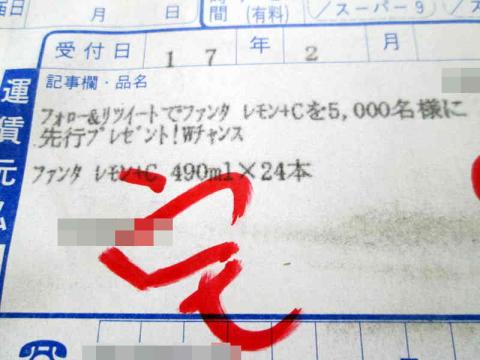 届日 月 日 時間 (有料) /スーパー9
受付日 17年 2 月
記事欄・品名
フォロー&リツイートでファンタ レモン+Cを5,000名様に
先行プレゼント!Wチャンス
ファンタ レモン+C 490ml×24本
運賃元払